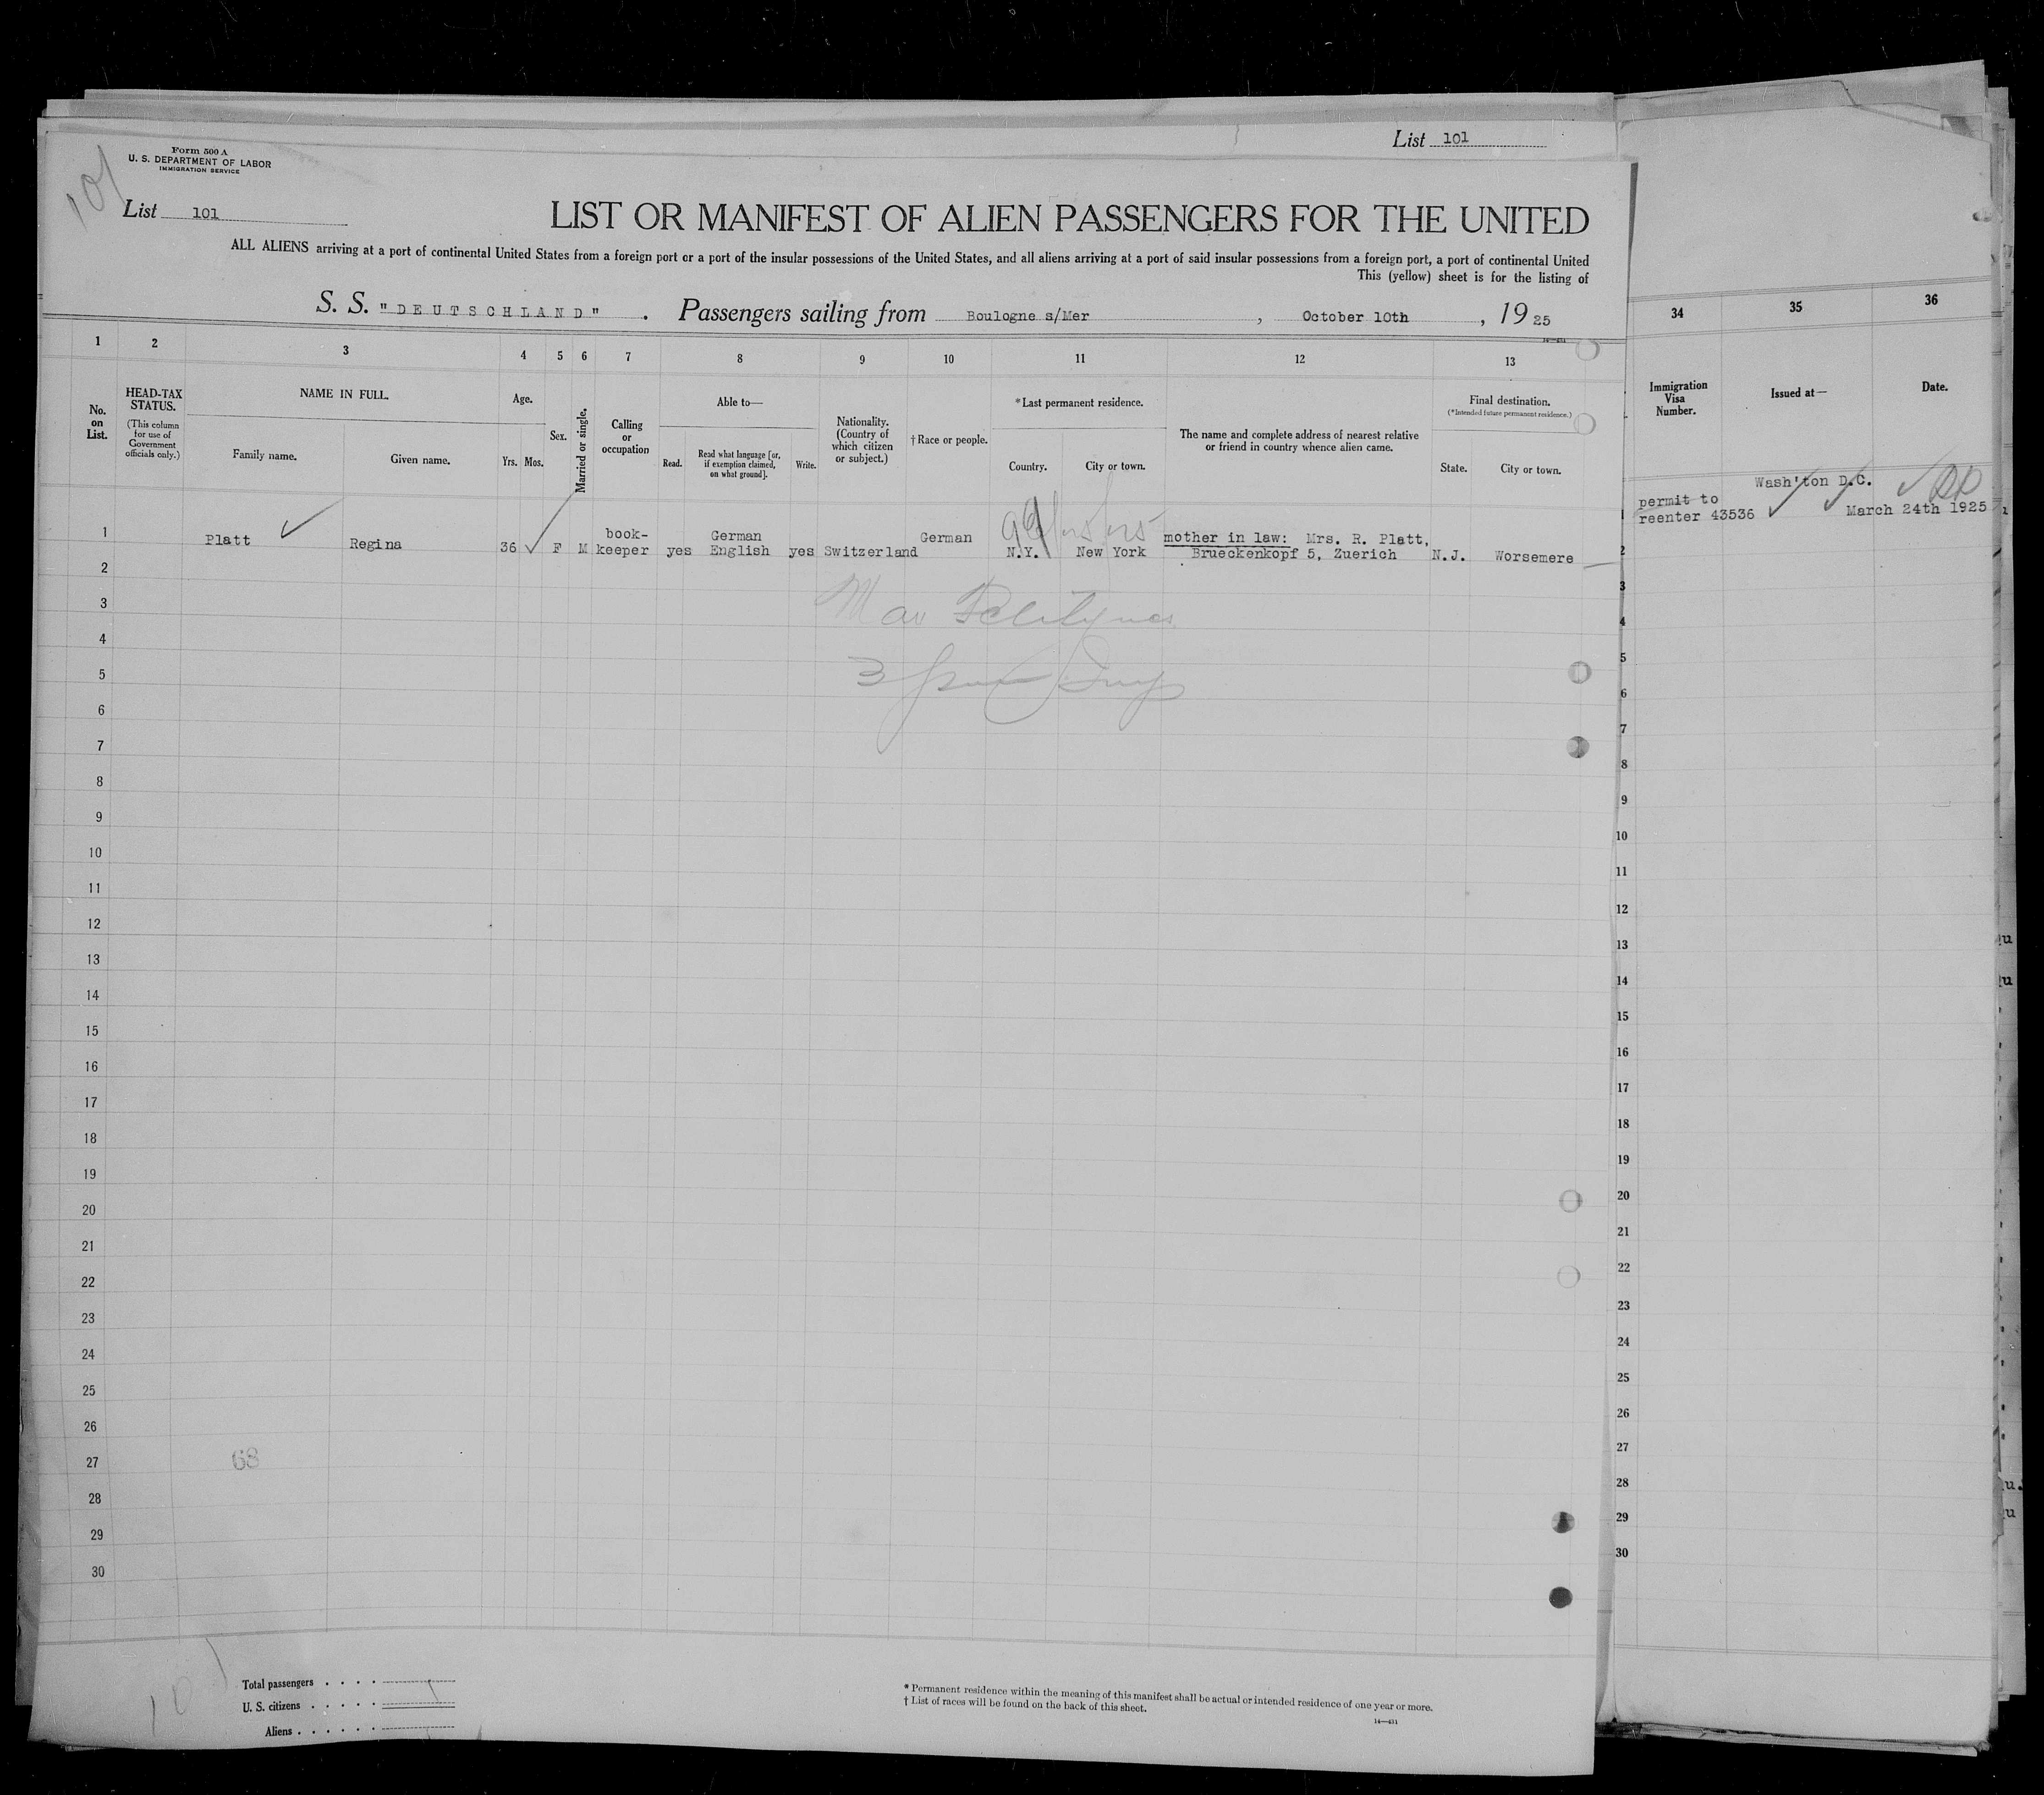 List 101
Form 500 A
U. S. DEPARTMENT OF LABOR
IMMIGRATION SERVICE
101
List 101
LIST OR MANIFEST OF ALIEN PASSENGERS FOR THE UNITED
ALL ALIENS arriving at a port of continental United States from a foreign port or a port of the insular possessions of the United States, and all aliens arriving at a port of said insular possessions from a foreign port, a port of continental United
This (yellow) sheet is for the listing of
S. S. "DEUTSCHLAND" . Passengers sailing from Boulogne s/Mer , October 10th , 19 25
1 2 3 4 5 6 7 8 9 10 11 12 13 34 35 36
No. on List.
HEAD-TAX STATUS.
(This column for use of Government officials only.)
NAME IN FULL.
Family name. Given name.
Age.
Yrs. Mos.
Sex.
Married or single.
Calling or occupation
Able to—
Read. Read what language [or, if exemption claimed, on what ground]. Write.
Nationality. (Country of which citizen or subject.)
†Race or people.
*Last permanent residence.
Country. City or town.
The name and complete address of nearest relative or friend in country whence alien came.
Final destination.
(*Intended future permanent residence.)
State. City or town.
Immigration Visa Number.
Issued at—
Date.
1 Platt Regina 36 F M book-keeper yes German English yes Switzerland German N.Y. New York mother in law: Mrs. R. Platt, Brueckenkopf 5, Zuerich N.J. Worsemere
permit to reenter 43536 Wash'ton D.C. March 24th 1925
2
3
4
5
6
7
8
9
10
11
12
13
14
15
16
17
18
19
20
21
22
23
24
25
26
27
68
28
29
30
1
2
3
4
5
6
7
8
9
10
11
12
13
14
15
16
17
18
19
20
21
22
23
24
25
26
27
28
29
30
Total passengers . . . .
U. S. citizens . . . . .
Aliens . . . . . .
* Permanent residence within the meaning of this manifest shall be actual or intended residence of one year or more.
† List of races will be found on the back of this sheet.
14—431